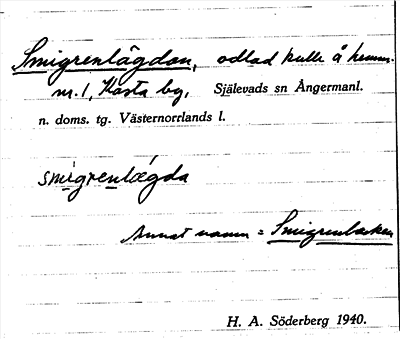 Smigrenlägdan, odlad kulle å hemm.
nr. 1, Kasta by, Själevads sn Ångermanl.
n. doms. tg. Västernorrlands l.
smigrenlægda
Annat namn = Smigrenbacken
H. A. Söderberg 1940.